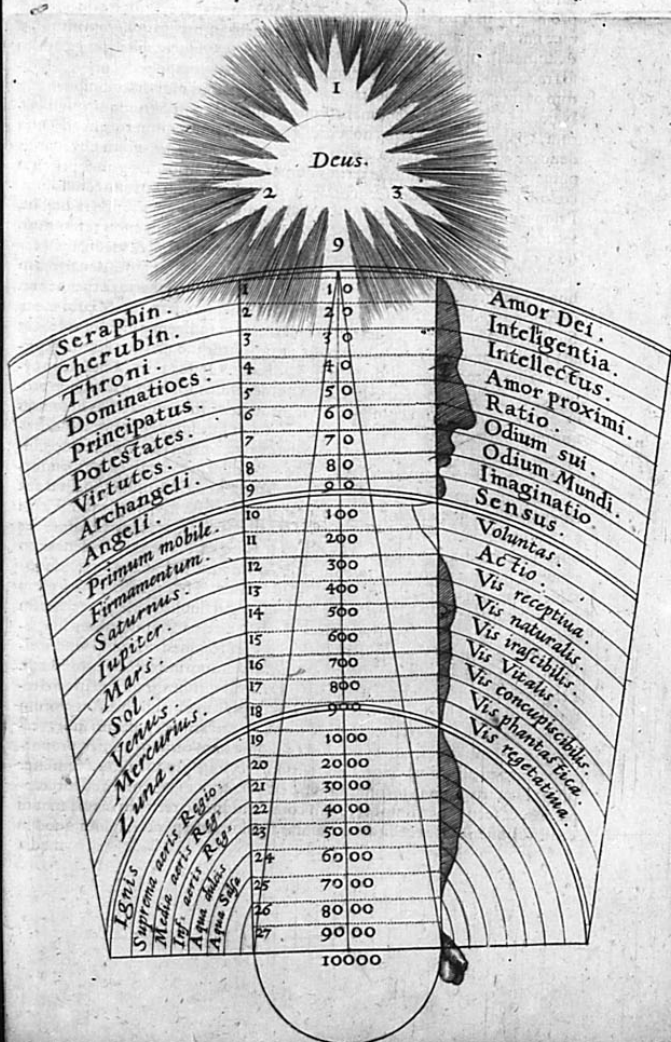 1
Deus.
2 3
9
Seraphin.
Cherubin.
Throni.
Dominatioēs.
Principatus.
Potestates.
Virtutes.
Archangeli.
Angeli.
Primum mobile.
Firmamentum.
Saturnus.
Iupiter.
Mars.
Sol.
Venus.
Mercurius.
Luna.
Ignis
Suprema aeris Regio.
Media aeris Reg.
Inf. aeris Reg.
Aqua dulcis
Aqua Salsa
1 10
2 20
3 30
4 40
5 50
6 60
7 70
8 80
9 90
10 100
11 200
12 300
13 400
14 500
15 600
16 700
17 800
18 900
19 1000
20 2000
21 3000
22 4000
23 5000
24 6000
25 7000
26 8000
27 9000
10000
Amor Dei.
Inteligentia.
Intellectus.
Amor proximi.
Ratio.
Odium sui.
Odium Mundi.
Imaginatio.
Sensus.
Voluntas.
Actio.
Vis receptiua.
Vis naturalis.
Vis irascibilis.
Vis Vitalis.
Vis concupiscibilis.
Vis phantastica.
Vis vegetatiua.